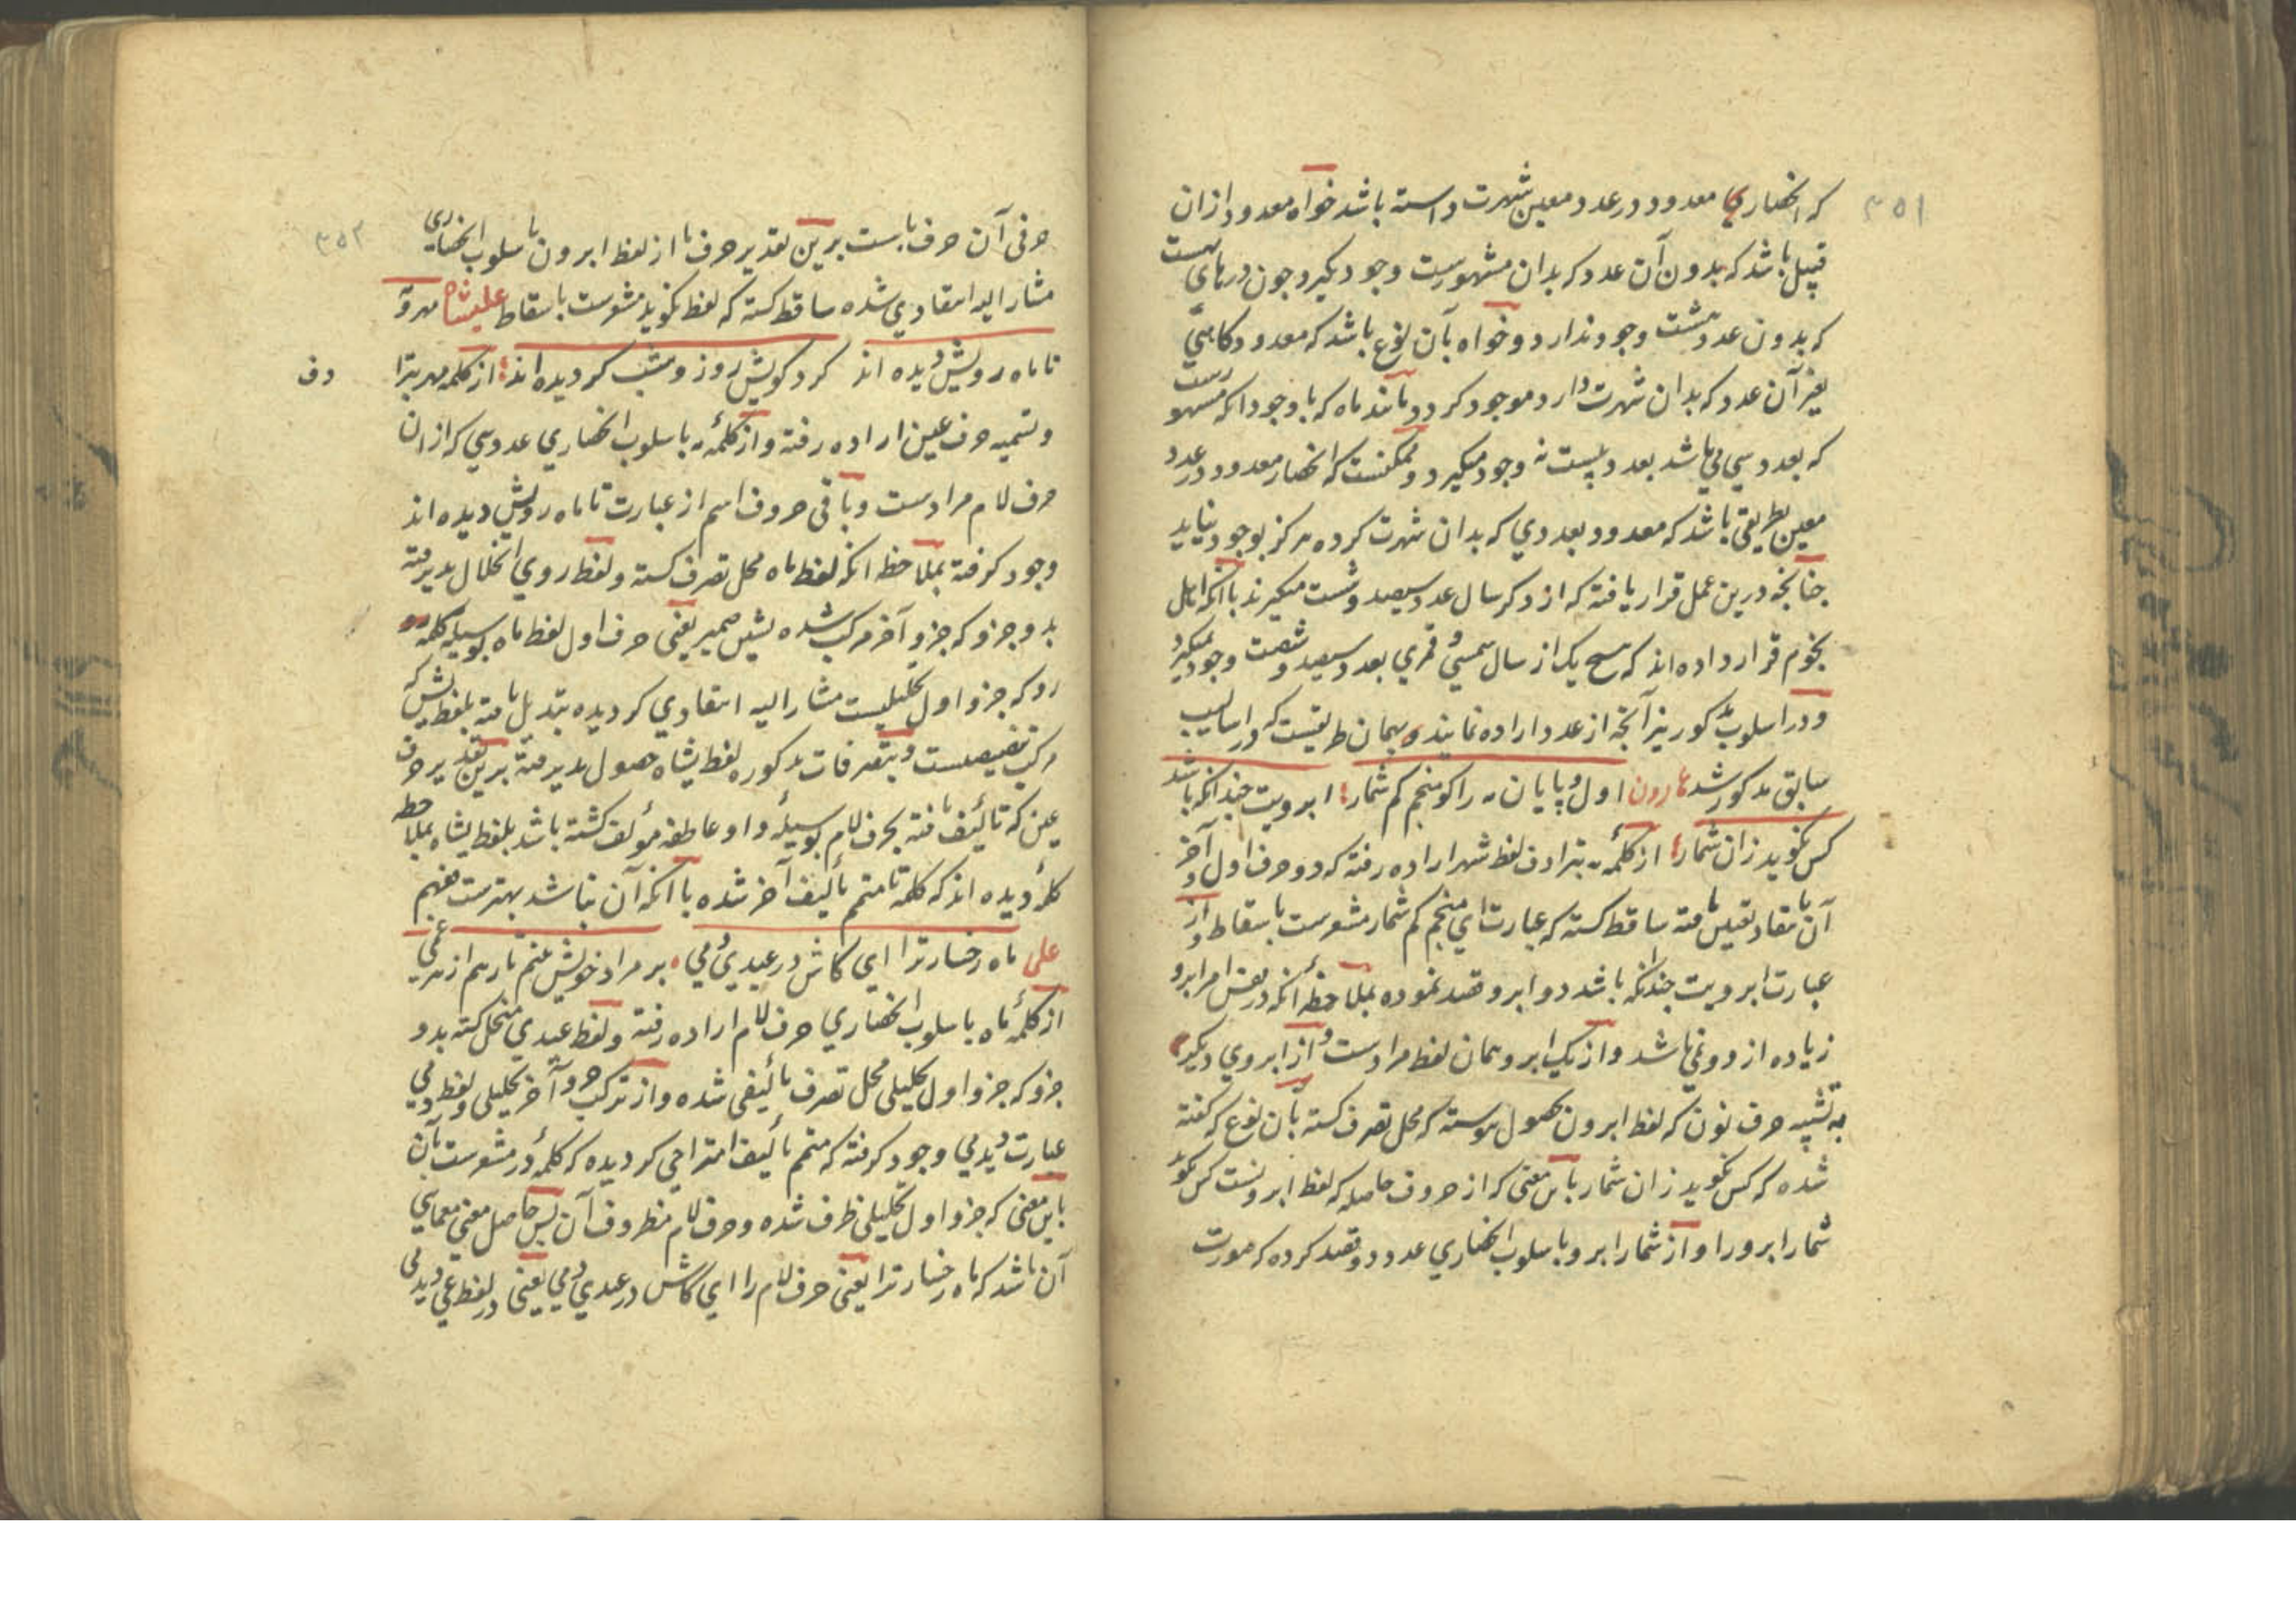 ۳۵۱
که انحصاری معدود در عدد معین شهرت داسته باشد خواه معدود ازان
قبیل باشد که بدون آن عدد که بدان مشهورست وجود نگیرد چون درهای بهشت
که بدون عدد هشت وجود ندارد و خواه بآن نوع باشد که معدود کاهی
بغیر آن عدد که بدان شهرت دارد موجود کردد مانند ماه که با وجود انکه مشهورست
که بعدد سی می باشد بعدد بیست نه وجود میکیرد و ممکنست که انحصار معدود در عدد
معین بطریقی باشد که معدود بعددی که بدان شهرت کرده هرکز بوجود نیاید
چنانچه درین عمل قرار یافته که از ذکر سال عدد سیصد و شست میکیرند با انکه اهل
نجوم قرار داده اند که هیچ یک از سال شمسی و قمری بعدد سیصد و شصت وجود نمیکیرد
و در اسلوب مذکور نیز آنچه از عدد اراده نمایند بهمان طریقیست که در اسالیب
سابق مذکور شد هارون اول و پایان مه را کو منجم کم شمار ابرویت چندانکه باشد
کس نکوید زان شمار از کلمه مه بترادف لفظ شهر اراده رفته که دو حرف اول و آخر
آن بانتقاد تعیین یافته ساقط کسته که عبارت ای منجم کم شمار مشعرست باسقاط و از
عبارت ابرویت چندانکه باشد دو ابرو قصد نموده بملاحظه آنکه در نفس امر ابرو
زیاده از دو نمی باشد و از یک ابرو همان لفظ مرادست و از ابروی دیگر
به تشبیه حرف نون که لفظ ابرون حصول پیوسته که محل تصرف کسته بآن نوع که کفته
شده که کس نکوید زان شمار باین معنی که از حروف حاصله که لفظ ابرونست کس نکوید
شمار ابرو را و از شمار ابرو باسلوب انحصاری عدد دو قصد کرده که صورت
۳۵۲
حرفی آن حرف باست برین تقدیر حرف با از لفظ ابرون باسلوب انحصاری
مشار الیه انتقادی شده ساقط کسته که لفظ نکوید مشعرست باسقاط علیشاه مهر و
تا ماه رویش دیده اند کرد کویش روز و شب کردیده اند از کلمه مهر بترا
دف
و تسمیه حرف عین اراده رفته و از کلمه مه باسلوب انحصاری عدد سی که از ان
حرف لام مرادست و باقی حروف اسم از عبارت تا ماه رویش دیده اند
وجود کرفته بملاحظه انکه لفظ ماه محل تصرف کسته و لفظ روی انحلال پذیرفته
بدو جزو که جزو آخر مرکب شده بشین ضمیر یعنی حرف اول لفظ ماه بوسیله کلمه
رو که جزو اول تحلیلیست مشار الیه انتقادی کردیده تبدیل یافته بلفظ یش که
مرکب تنصیصست و بتصرفات مذکوره لفظ یشاه حصول پذیرفته برین تقدیر حرف
عین که تألیف یافته بحرف لام بوسیله واو عاطفه مؤلف کشته باشد بلفظ یشاه بملاحظه
کلمه دیده اند که کلمه تا متمم تألیف آخر شده با انکه آن نباشد بهترست بفهم
علی ماه رخسار ترا ای کاش در عیدی و می بر مراد خویش بینم بارهم از هر غمی
از کلمه ماه باسلوب انحصاری حرف لام اراده رفته و لفظ عیدی منحل کشته بدو
جزو که جزو اول تحلیلی محل تصرف تألیفی شده و از ترکب جزو آخر تحلیلی و لفظ و می
عبارت دیدمی وجود کرفته که متمم تألیف امتزاجی کردیده که کلمه در مشعرست بآن
باین معنی که جزو اول تحلیلی ظرف شده و حرف لام مظروف آن پس حاصل معنی معمایی
آن باشد که ماه رخسار ترا یعنی حرف لام را ای کاش در عیدی و می یعنی در لفظ عی دیدمی